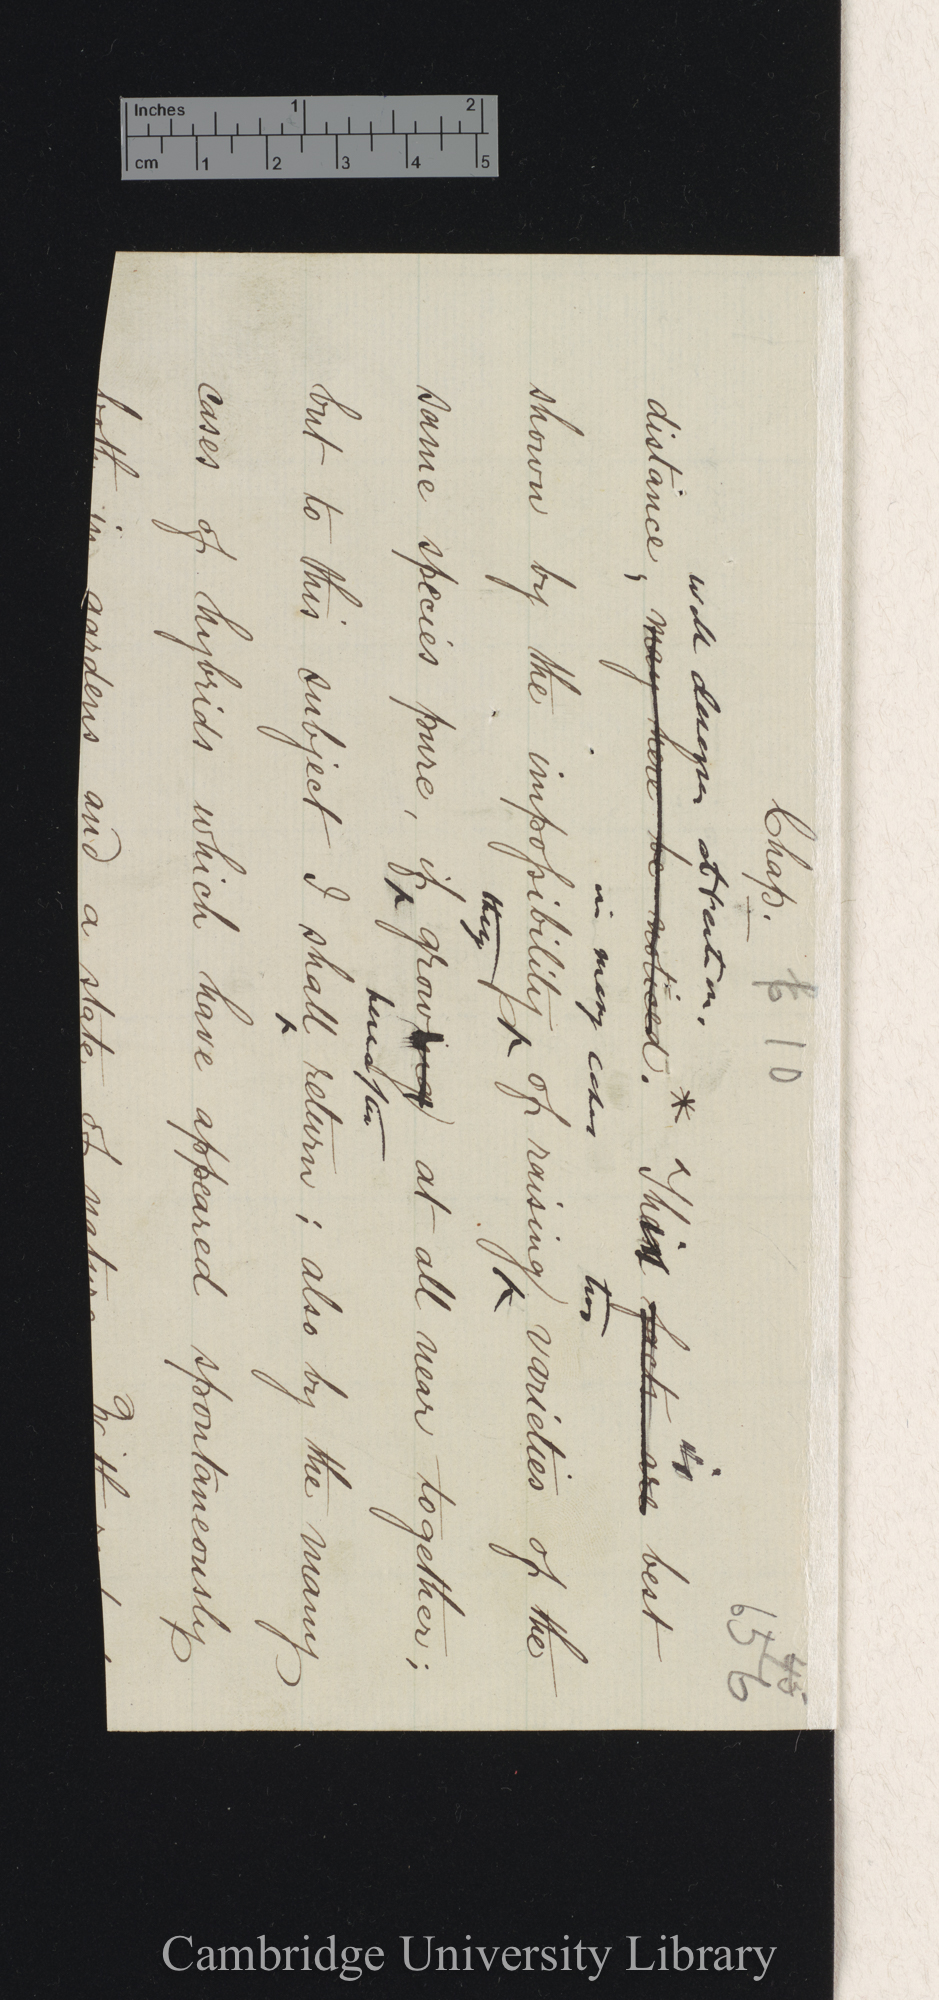 Inches 1 2
cm 1 2 3 4 5
Chap. 10
45
656
well deserves attention.
distance, may here be noticed. * This facts are is best
in many cases two
shown by the impossibility of raising varieties of the
they
same species pure, if growing at all near together;
hereafter
but to this subject I shall return; also by the many
cases of hybrids which have appeared spontaneously
both in gardens and a state of nature. With
Cambridge University Library